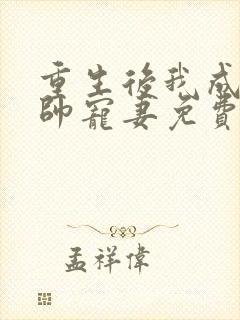 重生後我成
帥寵妻免費
孟祥偉